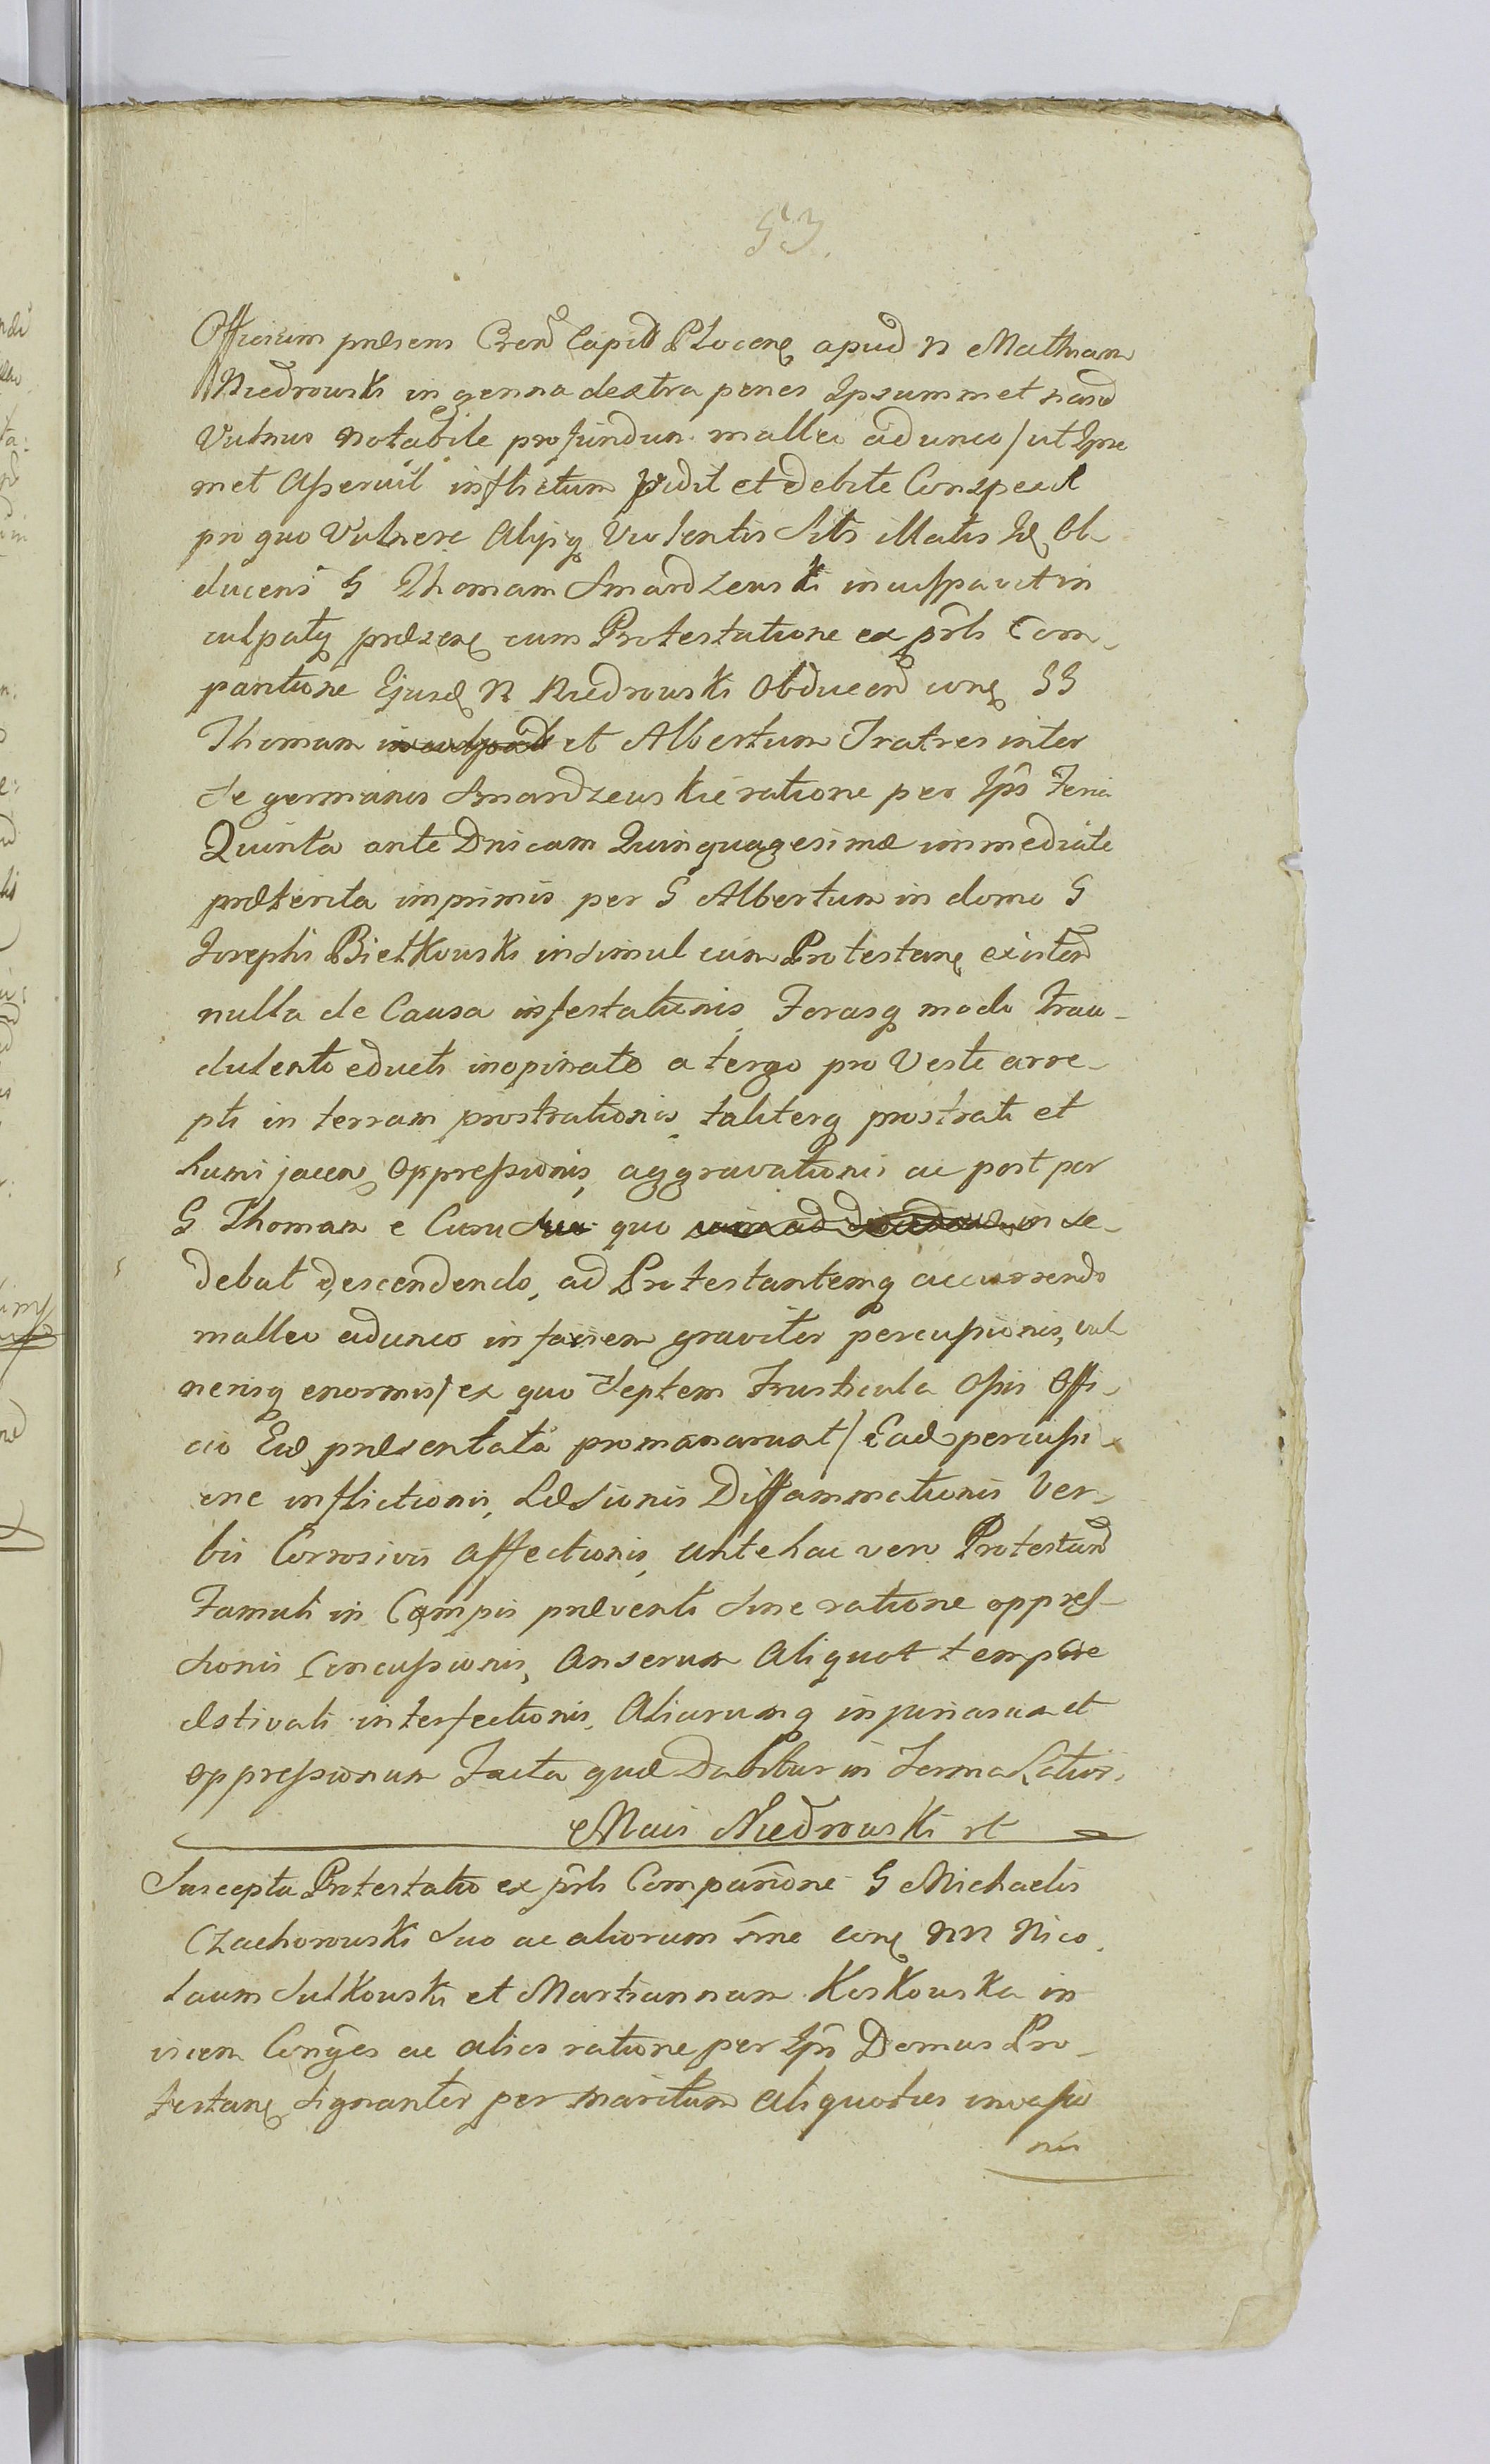 53.
Officium præsens Cren Capit Plocen apud N Mathiam
Niedrowski in genna dextra penes Ipsummet nasū
Vulnus notabile profundum malleo adunco / ut Ipse
met Asseruit inflictum vidit et debite Conspexit
pro quo Vulnere Alijsq Violentis Sibi illatis Id Ob-
ducens G Thomam Smardzewski inculpavit in
culpatq præsen cum Protestatione ex psti Com-
paritione Ejusd N Niedrowski Obducend conq GG
Thomam et Albertum Fratres inter
se germanos Smardzewskie ratione per Ipos Feria
Quinta ante Dnicam Quinquagesimæ immediate
præterita imprimis per G Albertum in domo G
Josephi Bietkowski insimul cum Protestan existen
nulla de Causa infestationis, Forasq modo frau-
dulento educti inopinate a tergo pro Veste arre-
pti in terram prostrationis, taliterq prostrati et
humi jacen oppressionis, aggravationis ac post per
G Thomam e Curru quo in se-
debat descendendo, ad Protestantemq accurrendo
malleo adunco in faciem graviter percussionis, vul
nerisq enormis / ex quo Septem Frusticula Ossis Offi-
cio Eid præsentata promanarunt / Ead percussi
one inflictionis, Læsionis Diffammationis Ver-
bis Corrosivis affectionis, Antehac vero Protestan
Famuli in Campis præventi sine ratione oppres-
sionis Concussionis, Anserum Aliquot tempore
æstivali interfectionis, Aliarumq injuriarum et
oppressionum Facta quæ Dabitur in Forma Lativ.
Mais Niedrowski rt
Suscepta Protestatio ex psti Comparitione G Michaelis
Czachorowski suo ac aliorum nne conq NN Nico-
laum Sulkowski et Martiannam Koskowska in
vicem Conges ac alios ratione per Ipos Domus Pro-
testan signanter per maritum aliquoties invasio
nis